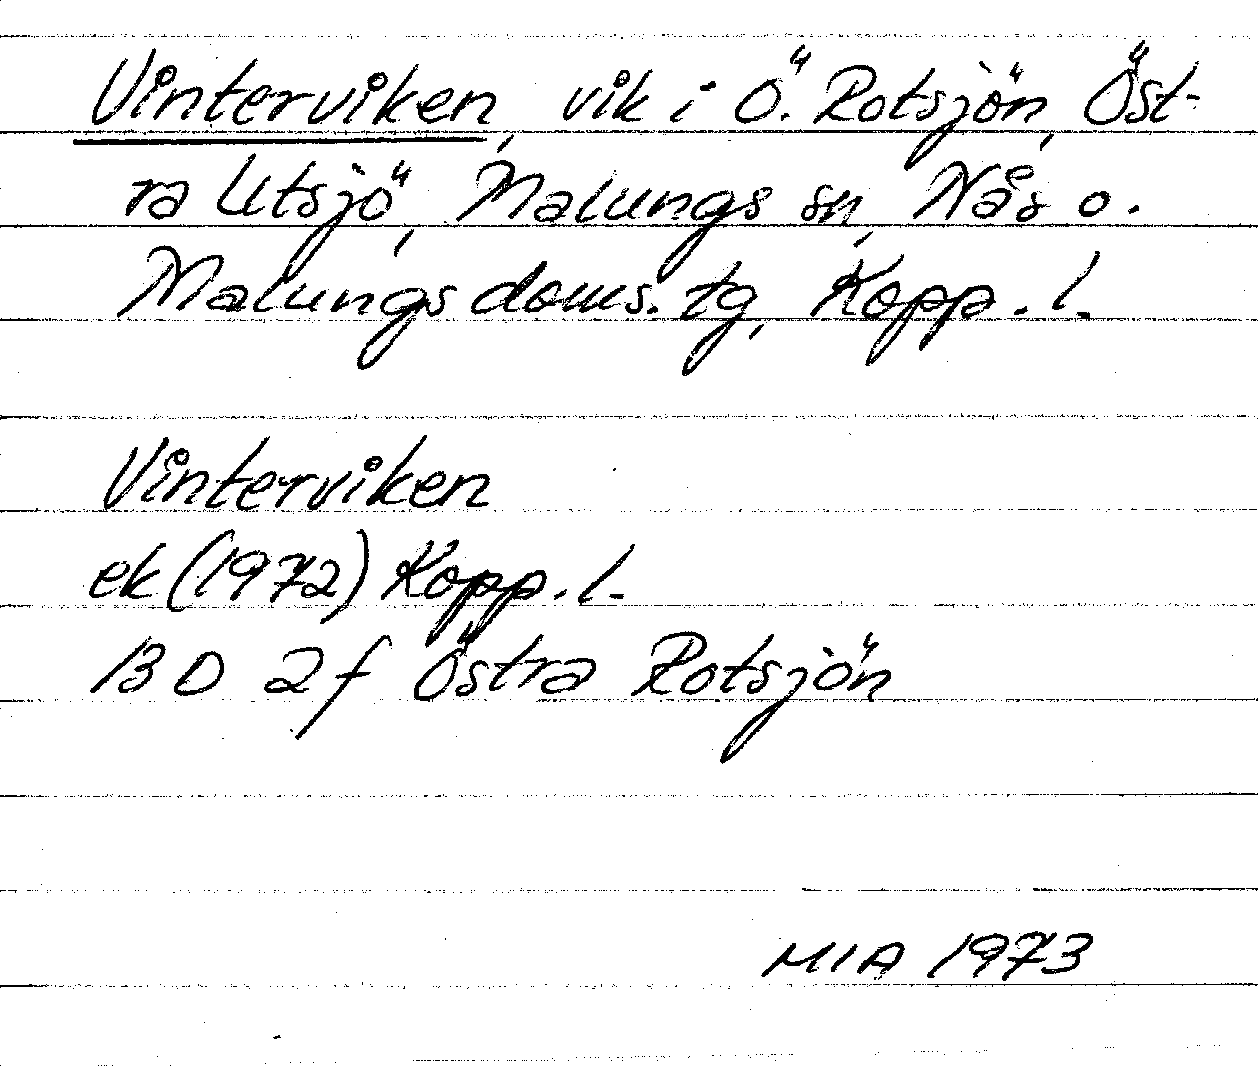 Vinterviken, vik i Ö. Rotsjön, Öst-
ra Utsjö, Malungs sn, Nås o.
Malungs doms. tg, Kopp. l.
Vinterviken
ek (1972) Kopp. l.
13 D 2f Östra Rotsjön
MIA 1973